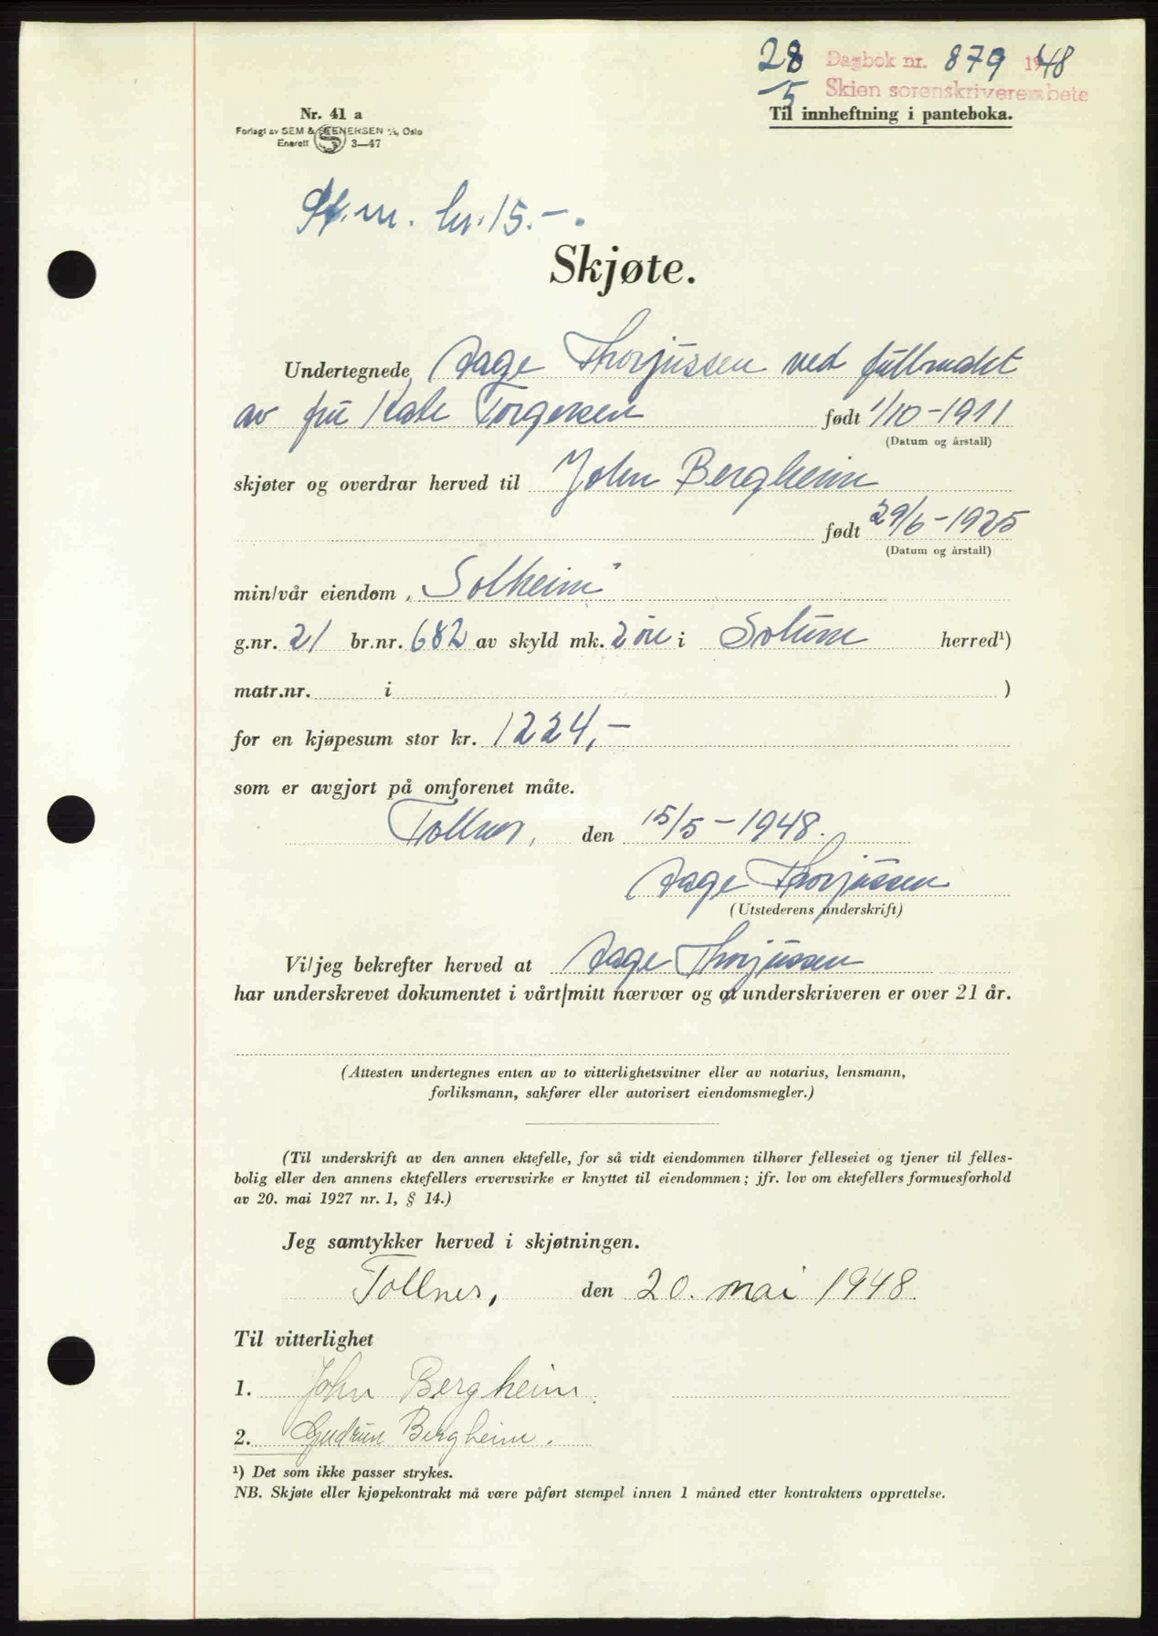 28/5 Dagbok nr. 879 1948
Skien sorenskriverembete
Til innheftning i panteboka.
Nr. 41 a
Forlagt av SEM & STENERSEN A/S, Oslo
Enerett 3—47
St.m. kr. 15.-.
Skjøte.
Undertegnede, Aage Thorjussen ved fullmakt
av fru Kate Torgersen født 1/10-1911
(Datum og årstall)
skjøter og overdrar herved til John Bergheim
født 29/6-1925
(Datum og årstall)
min/vår eiendom „Solheim"
g.nr. 21 br.nr. 682 av skyld mk. 2 øre i Solum herred¹)
matr.nr. i )
for en kjøpesum stor kr. 1224,-
som er avgjort på omforenet måte.
Tollnes, den 15/5-1948.
Aage Thorjussen
(Utstederens underskrift)
Vi/jeg bekrefter herved at Aage Thorjussen
har underskrevet dokumentet i vårt/mitt nærvær og at underskriveren er over 21 år.
(Attesten undertegnes enten av to vitterlighetsvitner eller av notarius, lensmann,
forliksmann, sakfører eller autorisert eiendomsmegler.)
(Til underskrift av den annen ektefelle, for så vidt eiendommen tilhører felleseiet og tjener til felles-
bolig eller den annens ektefellers ervervsvirke er knyttet til eiendommen; jfr. lov om ektefellers formuesforhold
av 20. mai 1927 nr. 1, § 14.)
Jeg samtykker herved i skjøtningen.
Tollnes, den 20. mai 1948.
Til vitterlighet
1. John Bergheim.
2. Gudrun Bergheim.
¹) Det som ikke passer strykes.
NB. Skjøte eller kjøpekontrakt må være påført stempel innen 1 måned etter kontraktens opprettelse.